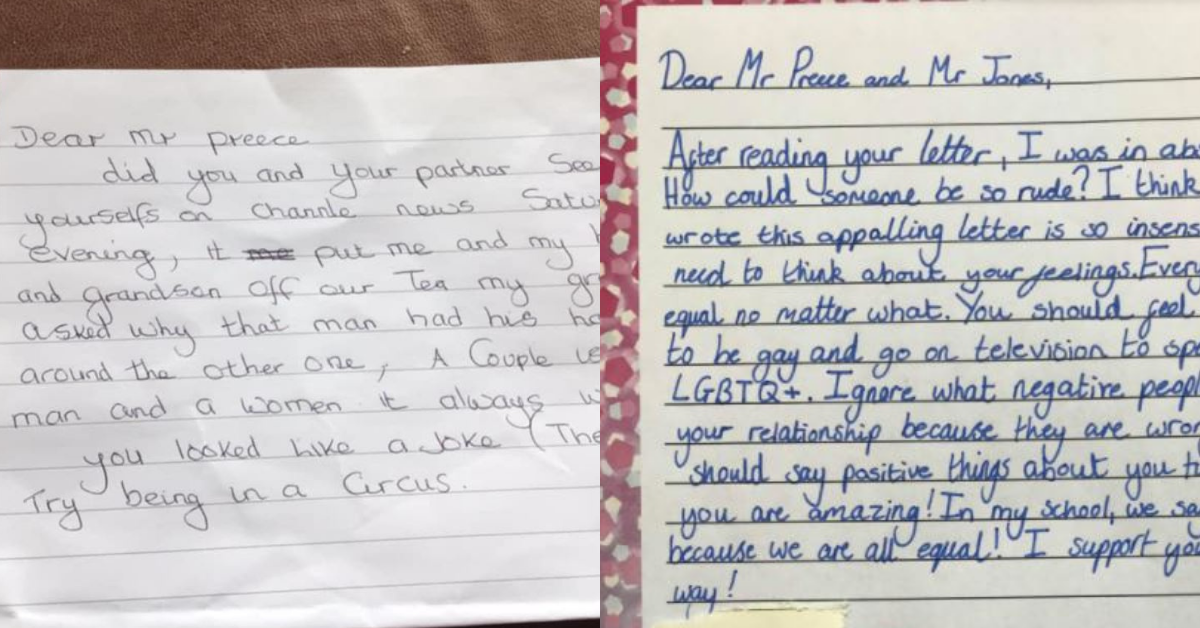 Dear Mr preece
did you and your partner See
yourselfs on channle news Satu
evening, it me put me and my h
and grandson off our Tea my gr
asked why that man had his ha
around the other one, A Couple is
man and a women it always w
you looked like a Joke (The
Try being in a Circus.
Dear Mr Preece and Mr Jones,
After reading your letter, I was in abs
How could someone be so rude? I think
wrote this appalling letter is so insens
need to think about your feelings. Every
equal no matter what. You should feel
to be gay and go on television to spe
LGBTQ+. Ignore what negative peop
your relationship because they are wron
should say positive things about you
you are amazing! In my school, we sa
because we are all equal! I support you
way!